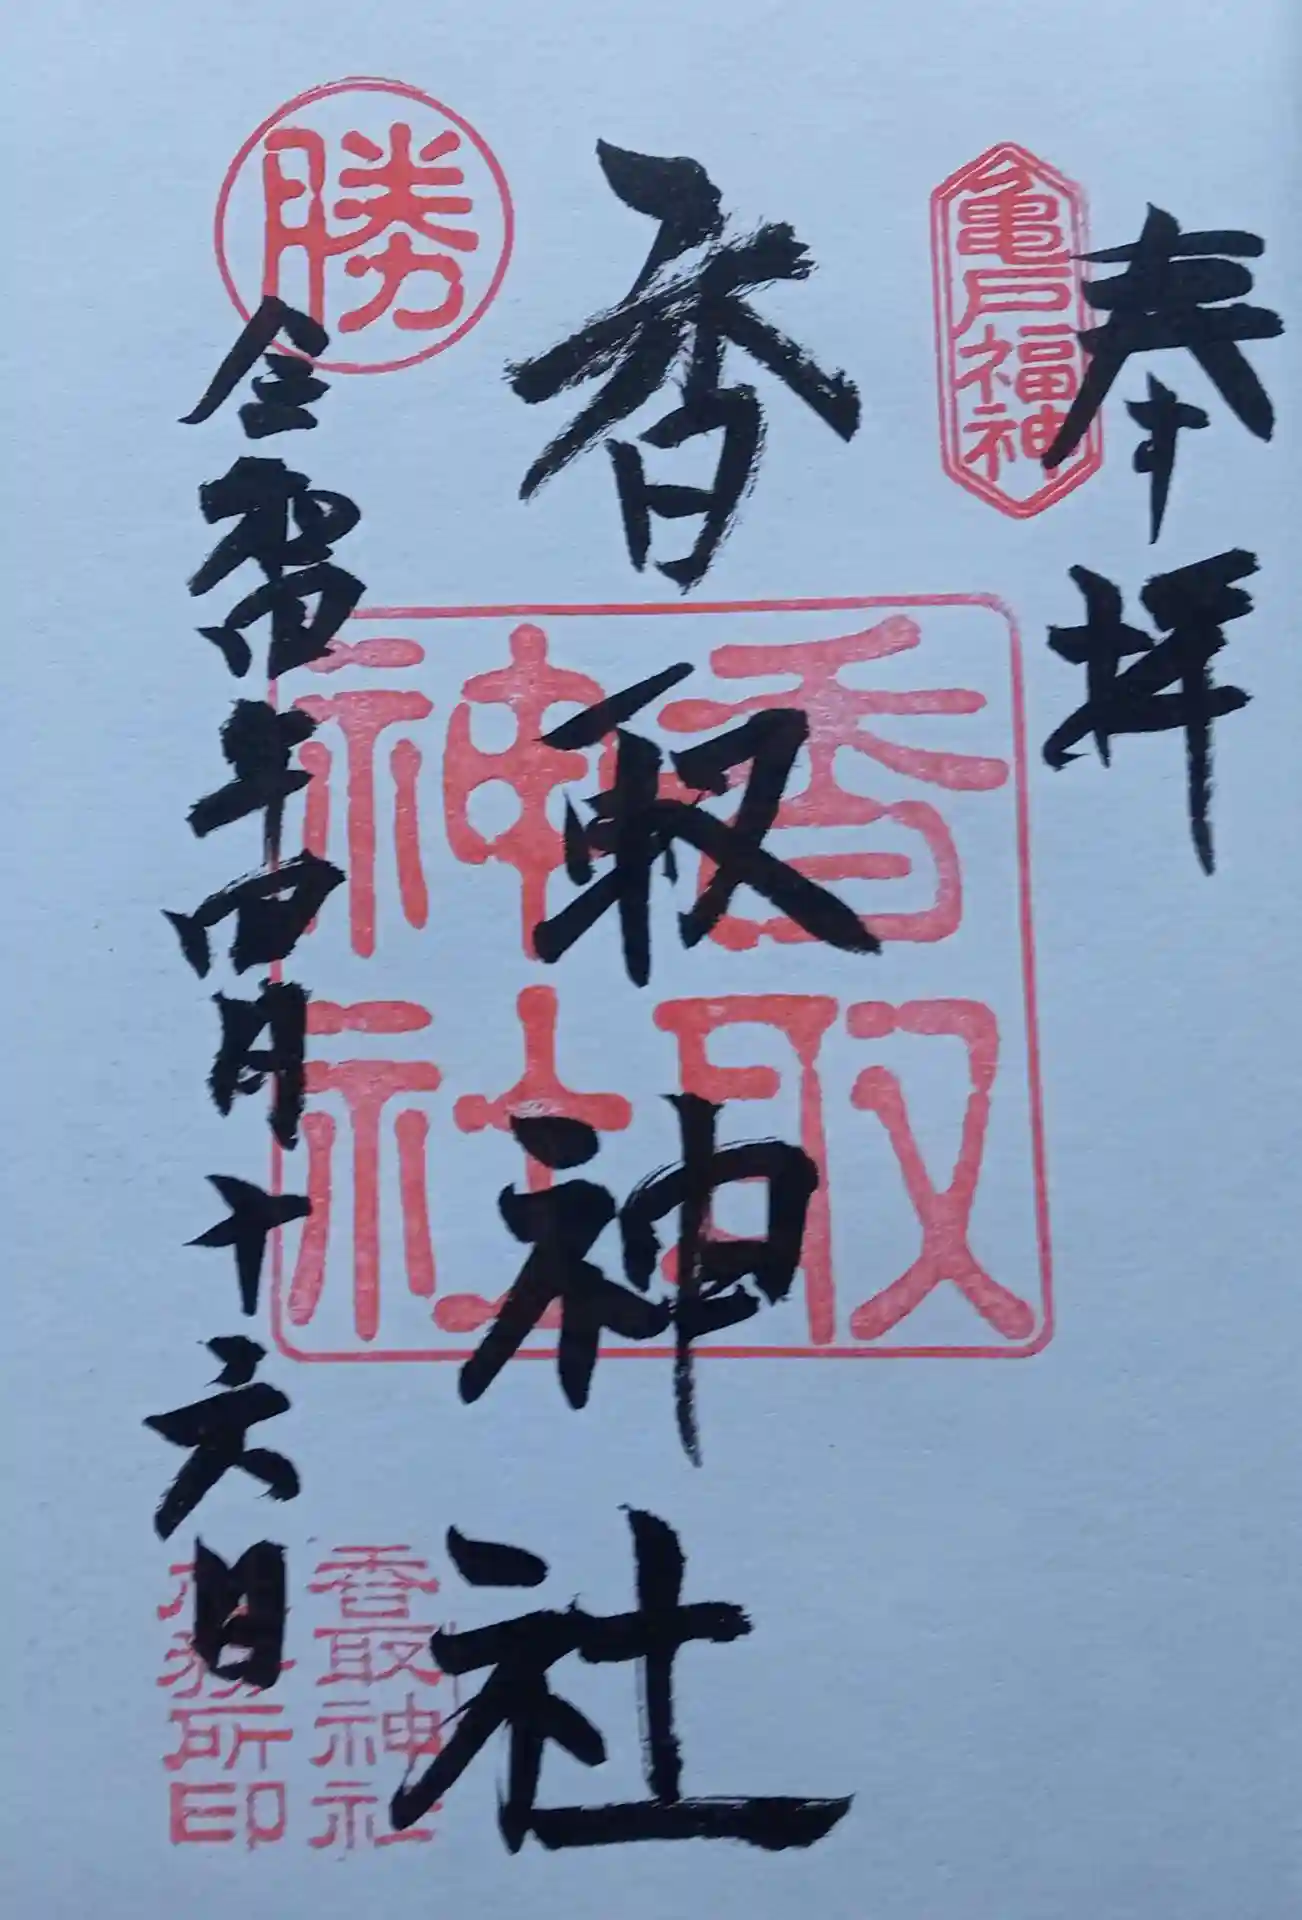 奉拝
亀戸福神
香取神社
香取
神社
勝
令和四年四月十六日
香取神社
社務所印